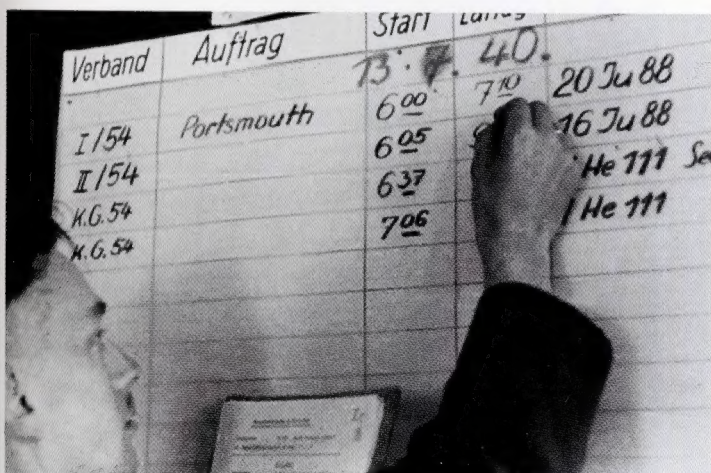 Verband Auftrag Start Landg
13. 7. 40.
I/54 Portsmouth 6 00 7 10 20 Ju 88
II/54 6 05 16 Ju 88
K.G. 54 6 37 He 111
K.G. 54 7 06 He 111